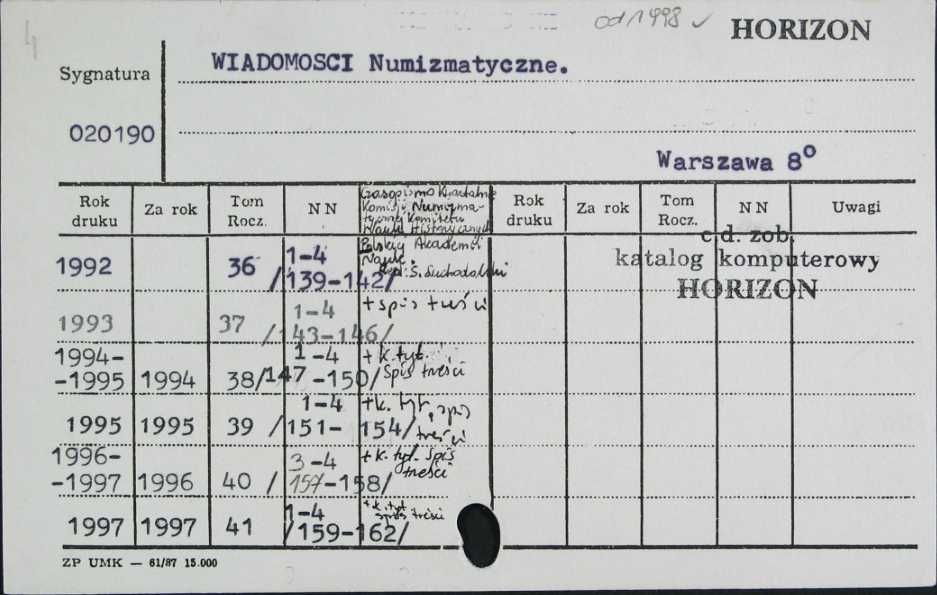 4
od 1998 ✓
HORIZON
Sygnatura
WIADOMOSCI Numizmatyczne.
020190
Warszawa 8º
Rok druku Za rok Tom Rocz. NN Rok druku Za rok Tom Rocz. NN Uwagi
Czasopismo Kwartalne
Komisji Numizma-
tycznej Komitetu
Nauk Historycznych
Polskiej Akademii
Nauk.
Red. S. Suchodolski
c.d. zob.
katalog komputerowy
HORIZON
1992 36 1-4
/139-142/
1993 37 1-4 + spis treści
/143-146/
1994- 1-4 + k. tyt.
-1995 1994 38/147-150/ Spis treści
1-4 + k. tyt., spis
1995 1995 39 /151-154/ treści
1996- 3-4 + k. tyt. Spis
-1997 1996 40 /157-158/ treści
1-4 + k. tyt
1997 1997 41 /159-162/ spis treści
ZP UMK — 61/87 15.000